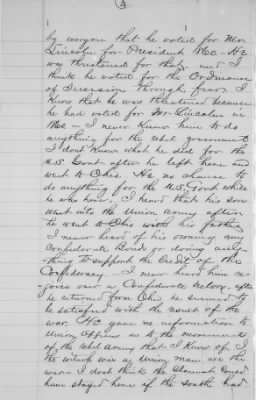 3
by everyone that he voted for Mr
Lincoln for President 1860. He
was threatened for that, and I
think he voted for the Ordinance
of Secession through fear I
know that he was threatened because
he had voted for Mr Lincoln in
1860 - I never knew him to do
anything for the rebel government
I dont know what he did for the
U.S. Govt after he left here and
went to Ohio. He no chance to
do anything for the U.S. Govt while
he was here, I heard that his son
went into the Union army after
he went to Ohio with his father
I never heard of his owning any
Confederate Bonds or doing any-
-thing to support the Credit of the
Confederacy - I never heard him re-
-joice over a Confederate victory, after
he returned from Ohio he seemed to
be satisfied with the result of the
war. He gave no information to
Union officers as to the movements
of the rebel army that I know of, I
the witness was a Union man all the
war - I dont think the Claimant could
have stayed here if the South had